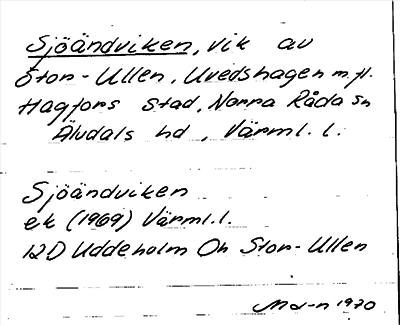 Sjöändviken, vik av
Stor-Ullen, Uvedshagen m.fl.
Hagfors stad, Norra Råda sn
Älvdals hd, Värml. l.
Sjöändviken
ek (1969) Värml.l.
12D Uddeholm Ön Stor-Ullen
1970